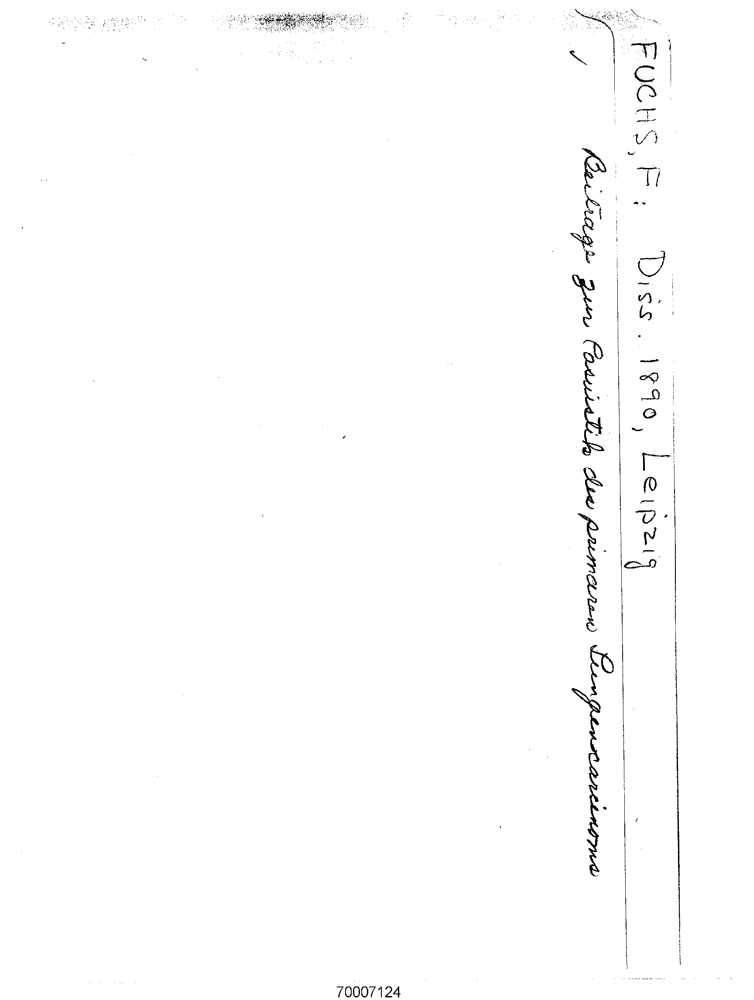 FUCHS, F: Diss. 1890, Leipzig
Beitrage zur Casuistik des primaren Lungencarcinoms
70007124